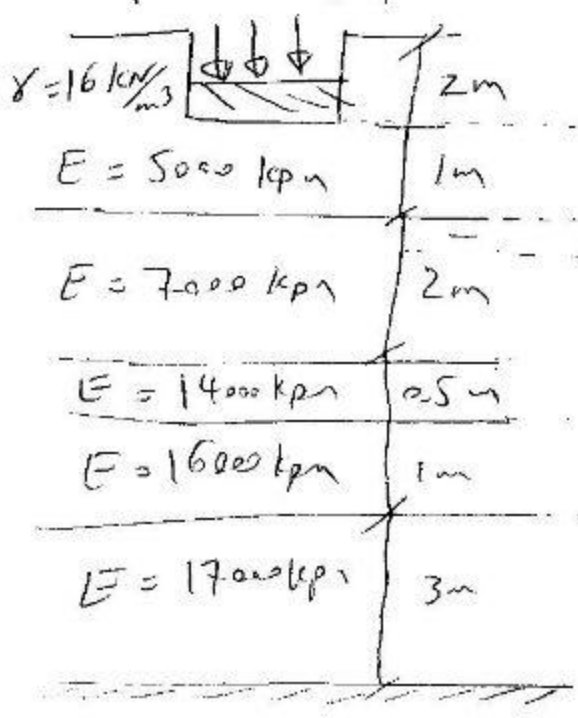 γ=16 kN/m3
2m
E = 5000 kpa
1m
E = 7000 kpa
2m
E = 14000 kpa
0.5m
E = 16000 kpa
1m
E = 17000 kpa
3m